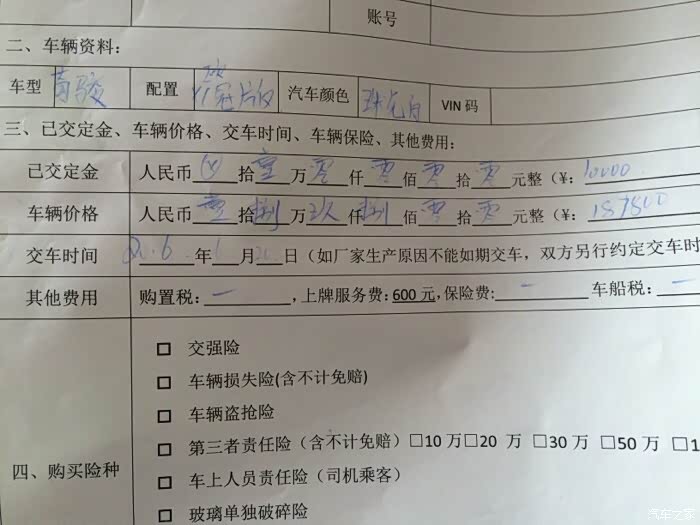 账号
二、车辆资料:
车型 配置 冠版 汽车颜色 珠光白 VIN码
三、已交定金、车辆价格、交车时间、车辆保险、其他费用:
已交定金 人民币 拾壹万零仟零佰零拾零元整（¥: 10000
车辆价格 人民币壹拾捌万玖仟捌佰零拾零元整（¥: 189800
交车时间 2016年 月 日（如厂家生产原因不能如期交车，双方另行约定交车时
其他费用 购置税: — ,上牌服务费: 600元, 保险费: — 车船税: —
□ 交强险
□ 车辆损失险(含不计免赔)
□ 车辆盗抢险
□ 第三者责任险（含不计免赔）□10万□20 万 □30万 □50万 □1
四、购买险种
□ 车上人员责任险（司机乘客）
□ 玻璃单独破碎险
汽车之家